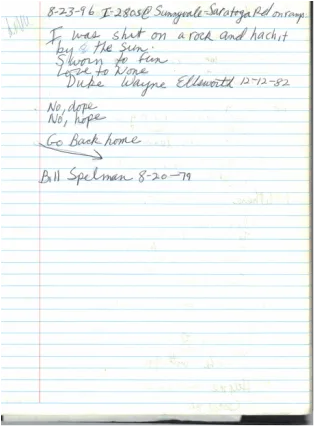 8-23-96 I-280S@ Sunnyvale-Saratoga Rd on ramp
I was shut on a rock and hachit
by the Sun.
Sworn to fun
Love to None
Duke Wayne Ellsworth 12-12-82
No, dope
No, hope
Go Back home
Bill Spelman 8-20-79